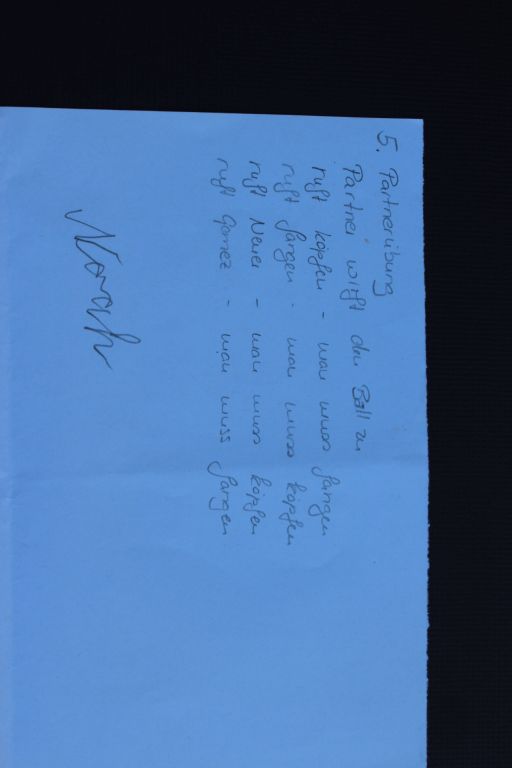 5. Partnerübung
Partner wirft den Ball zu
ruft köpfen - man muss fangen
ruft fangen - man muss köpfen
ruft Neuer - man muss köpfen
ruft Gomez - man muss fangen